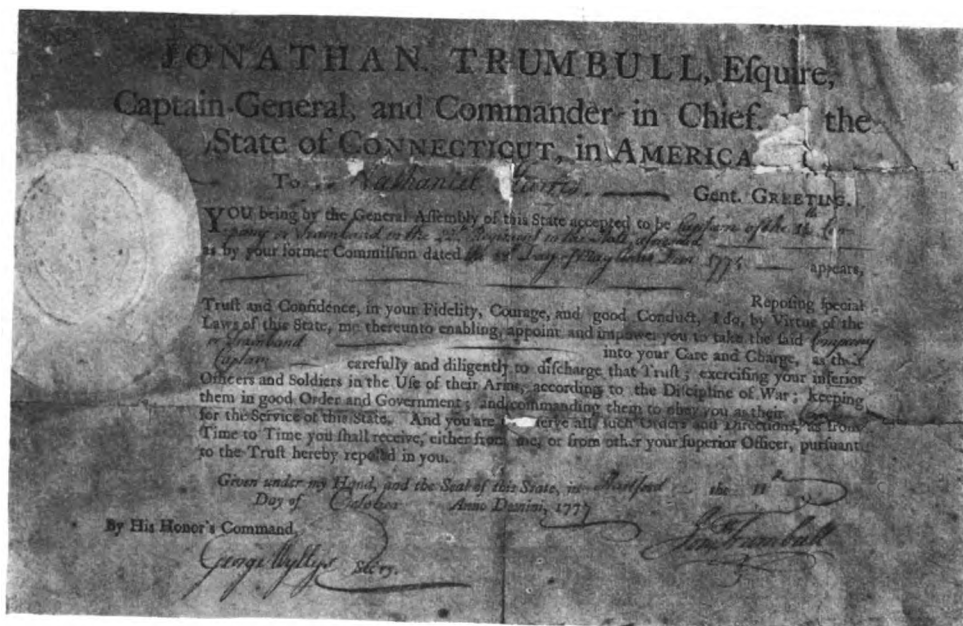 JONATHAN TRUMBULL, Eſquire,
Captain-General, and Commander in Chief the
State of CONNECTICUT, in AMERICA
To Nathaniel Gent. GREETING.
YOU being by the General Aſſembly of this State accepted to be Captain of the Com-
pany or Trainband in the Regiment in the State aforesaid
as by your former Commiſſion dated Day of May 177 appears,
Repoſing ſpecial
Truſt and Confidence, in your Fidelity, Courage, and good Conduct, I do, by Virtue of the
Laws of this State, me thereunto enabling, appoint and impower you to take the ſaid Company
or Trainband into your Care and Charge, as their
Captain carefully and diligently to diſcharge that Truſt; exerciſing your inferior
Officers and Soldiers in the Uſe of their Arms, according to the Diſcipline of War; keeping
them in good Order and Government; and commanding them to obey you as their
for the Service of this State. And you are ſerve all ſuch Orders and Directions, as from
Time to Time you ſhall receive, either from me, or from other your ſuperior Officer, purſuant
to the Truſt hereby repoſed in you.
Given under my Hand, and the Seal of this State, in Hartford the 11
Day of October Anno Domini, 1777
By His Honor's Command,
Jonth Trumbull
George Wyllys Secry.